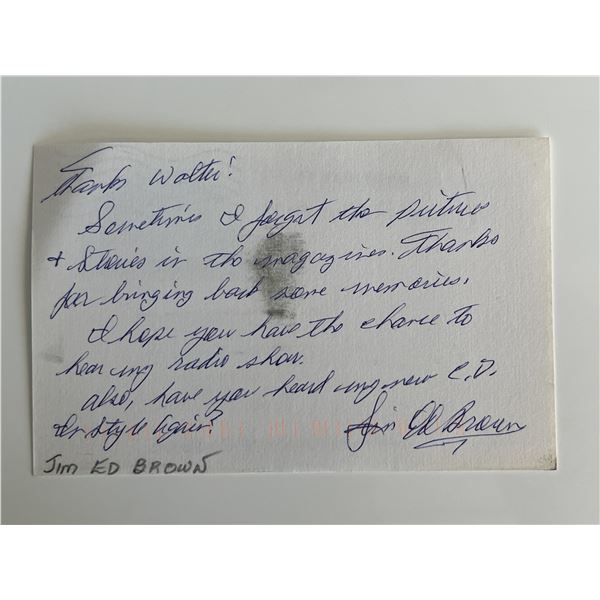 Thanks Walter!
Sometimes I forget the pictures
+ stories in the magazines. Thanks
for bringing back some memories.
I hope you have the chance to
hear my radio show.
also, have you heard my new C.D.
In Style Again?
Jim Ed Brown
JIM ED BROWN